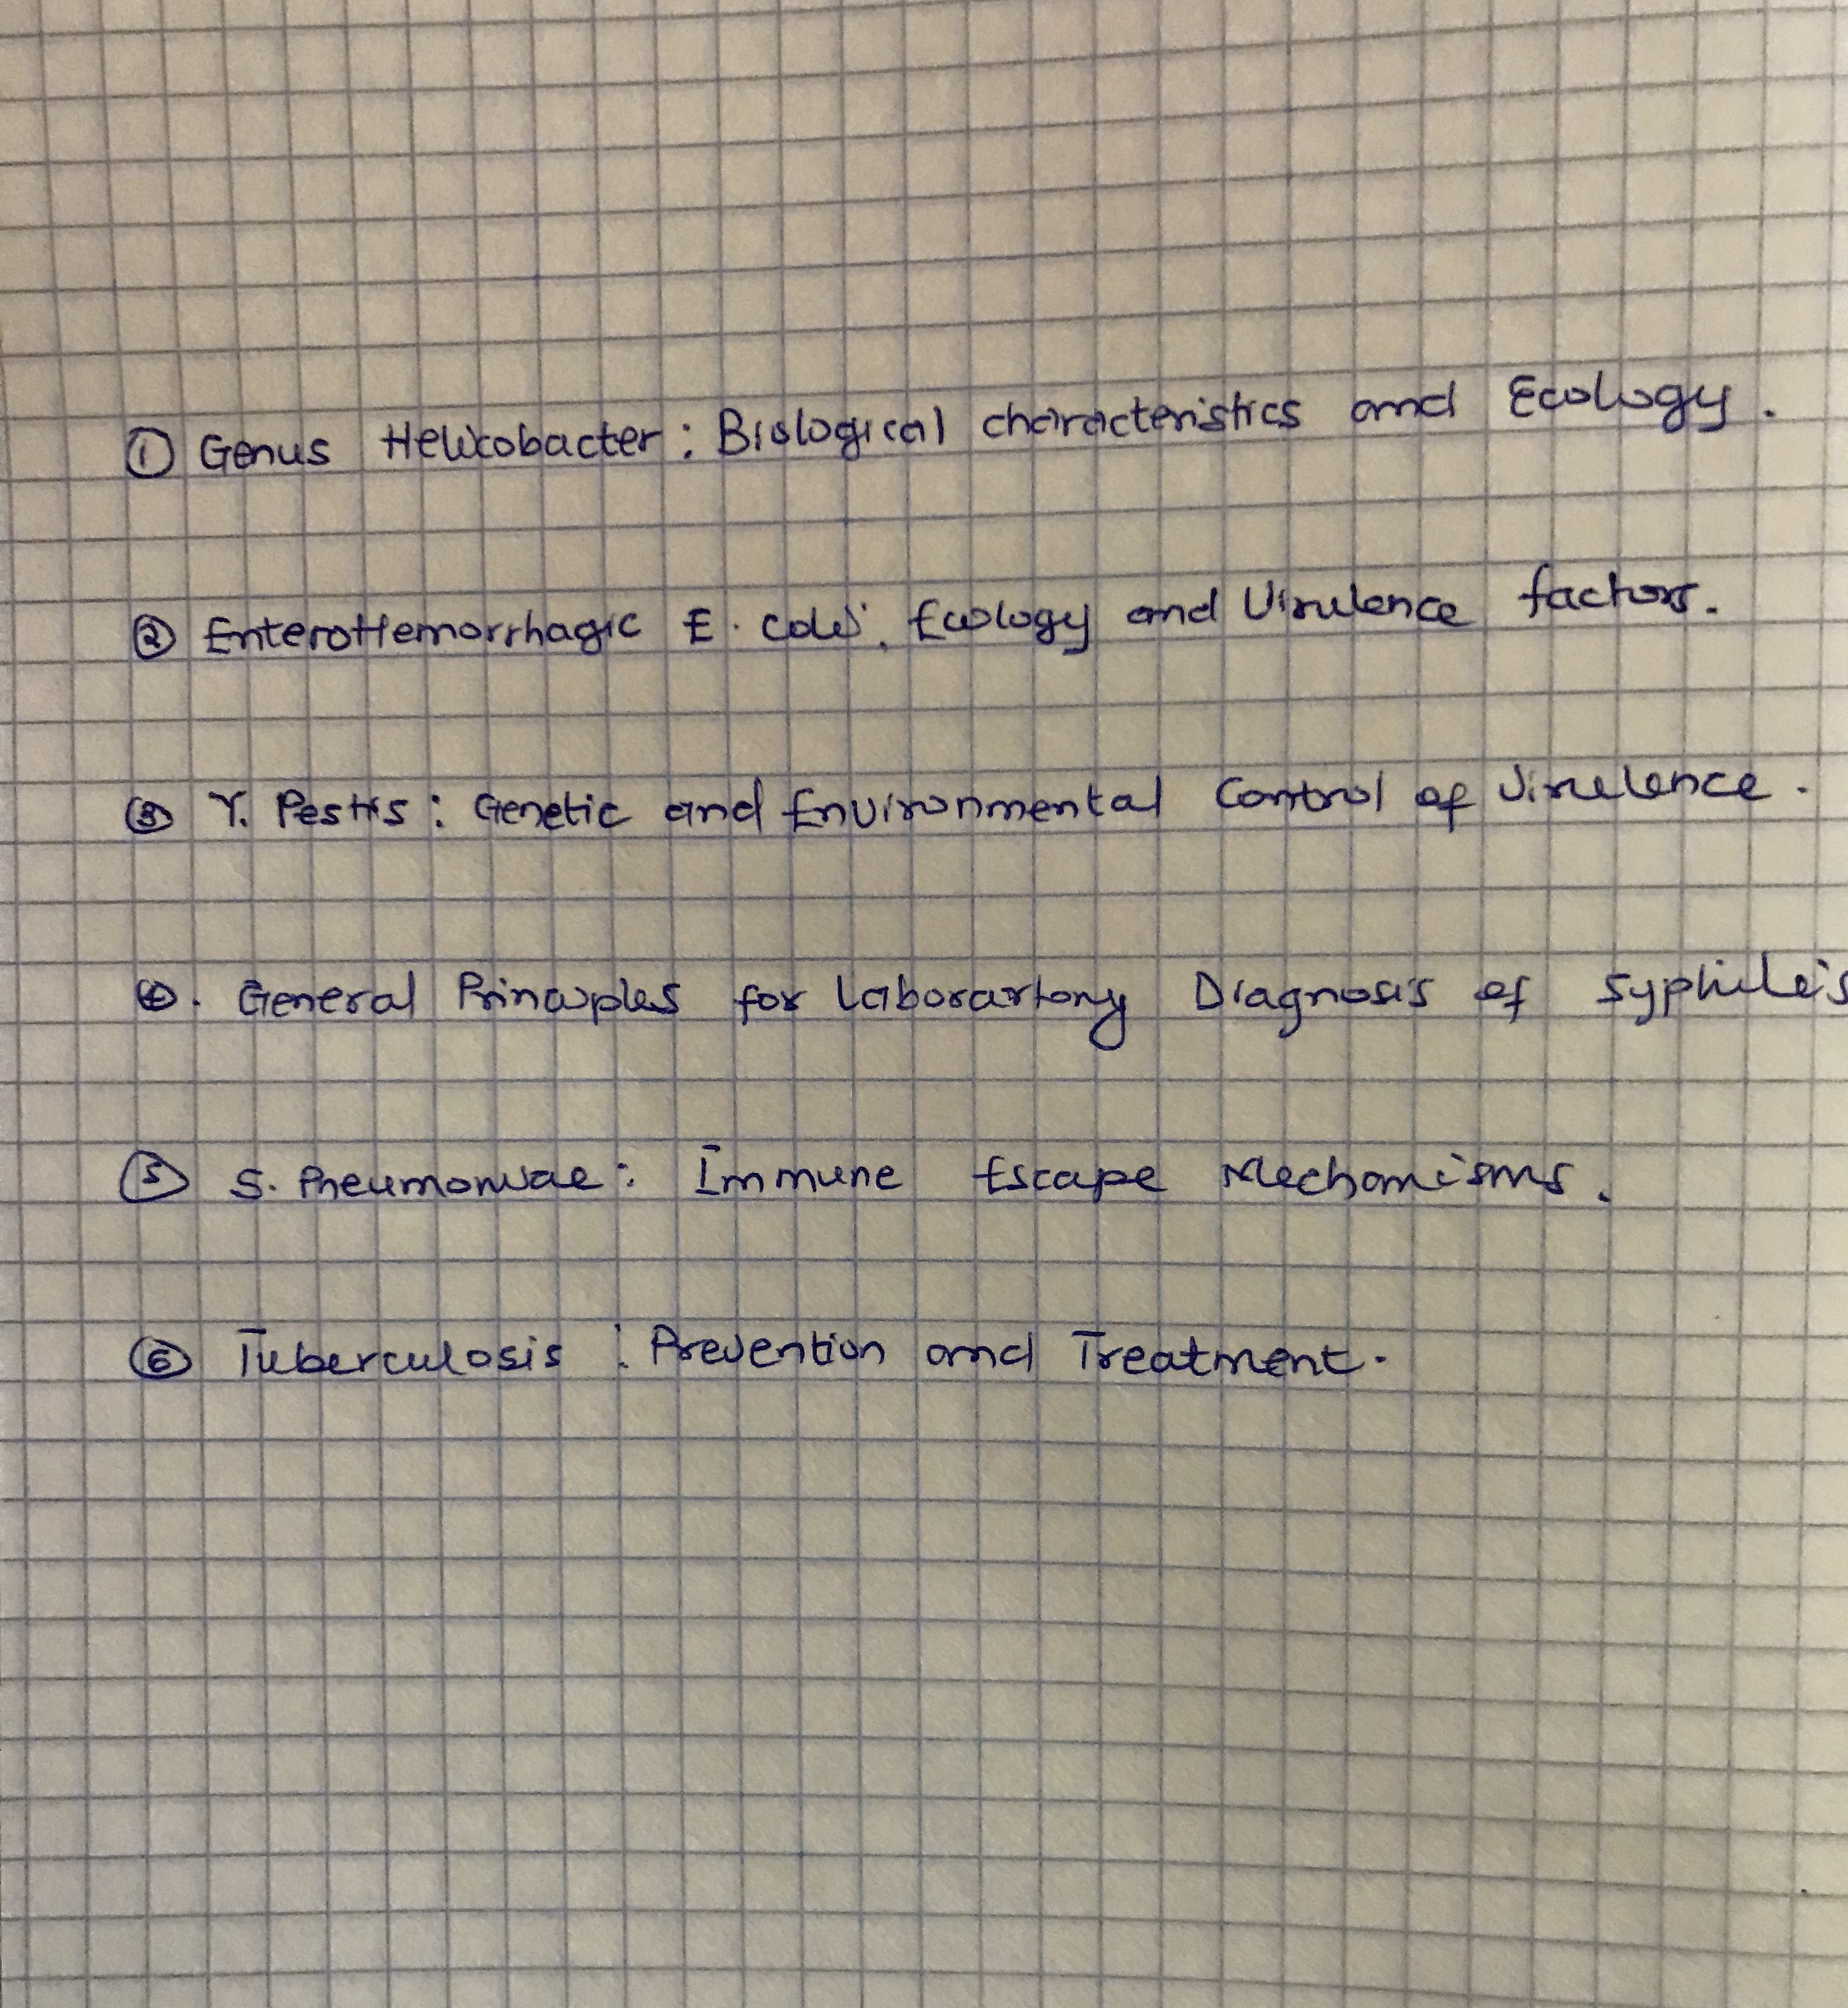 ① Genus Helicobacter : Biological characteristics and Ecology.
② EnteroHemorrhagic E. coli. Ecology and Virulence factors.
③ Y. Pestis : Genetic and Environmental Control of Virulence.
④. General Principles for Laborartory Diagnosis of Syphileis
⑤ S. Pneumoniae : Immune Escape Mechanisms.
⑥ Tuberculosis : Prevention and Treatment.